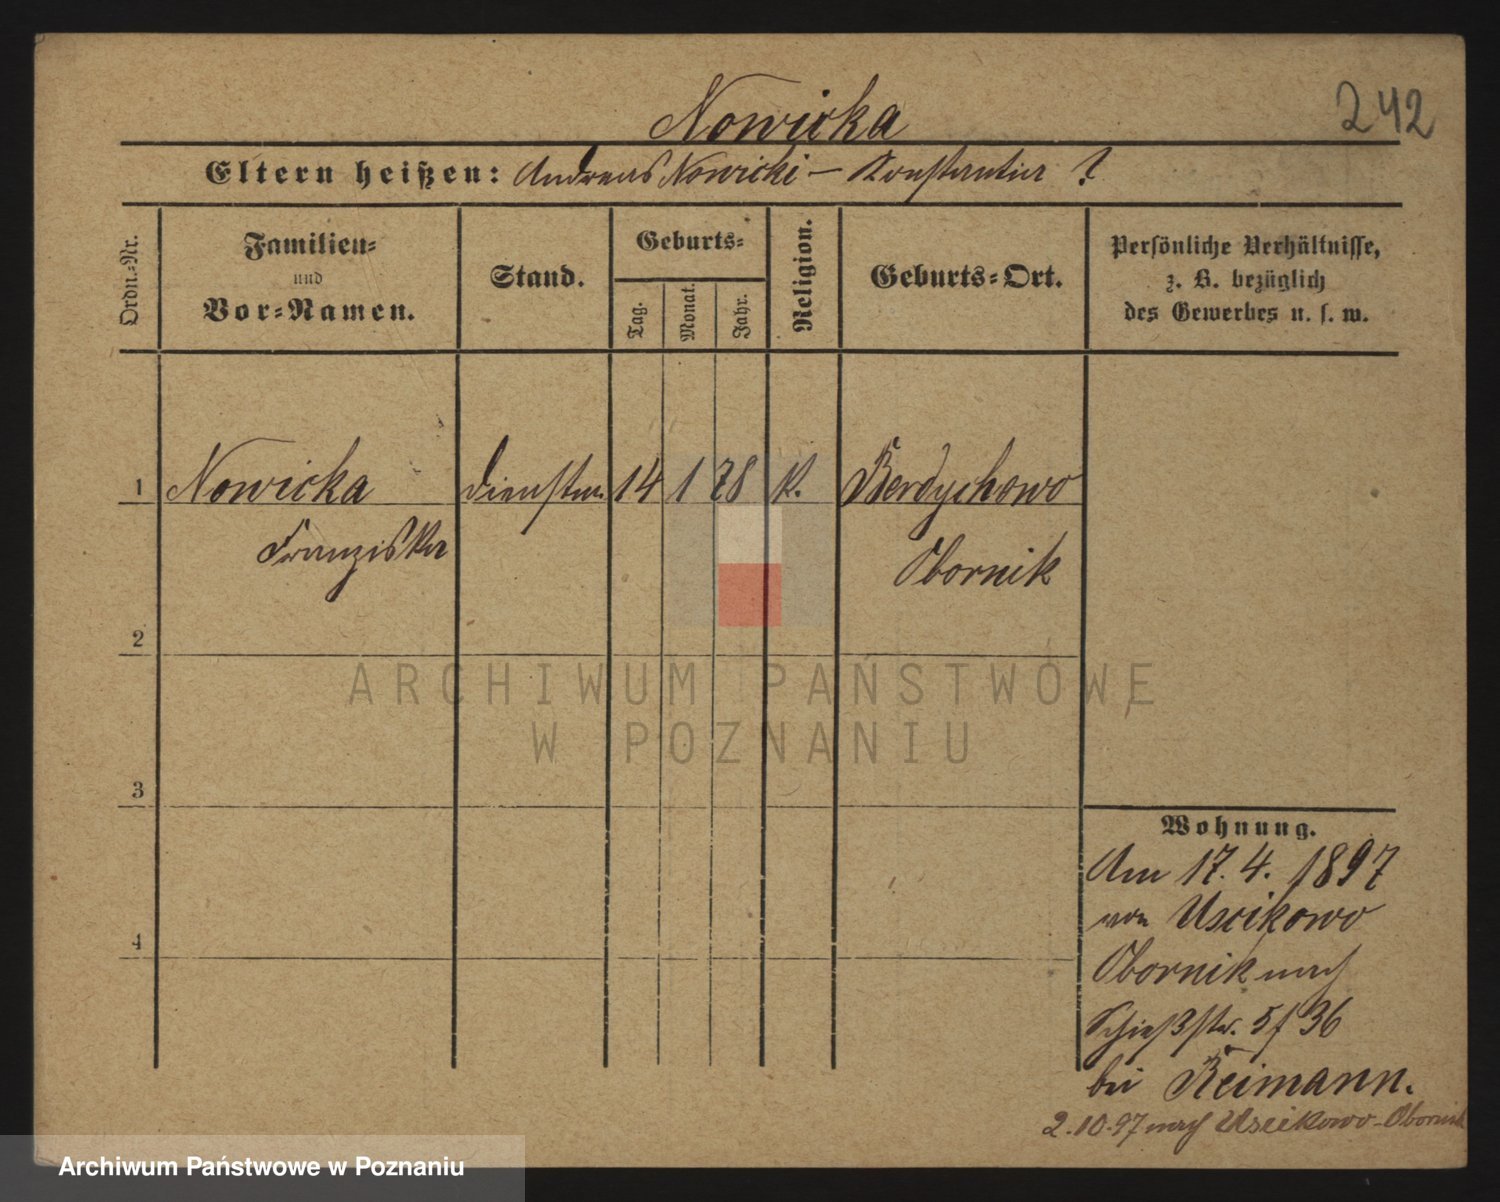 242
Nowicka
Eltern heißen: Andreas Nowicki – Konstantia ?
Ordn.-Nr.
Familien- und Vor-Namen.
Stand.
Geburts-
Tag.
Monat.
Jahr.
Religion.
Geburts-Ort.
Persönliche Verhältnisse,
z. B. bezüglich
des Gewerbes u. s. w.
1 Nowicka Dienstm. 14 1 78 K. Berdychowo
Franziska Obornik
2
3
4
Wohnung.
Am 17. 4. 1897
von Uscikowo
Obornik nach
Schießstr. 5/36
bei Reimann.
2.10.97 nach Uscikowo-Obornik
ARCHIWUM PAŃSTWOWE
W POZNANIU
Archiwum Państwowe w Poznaniu